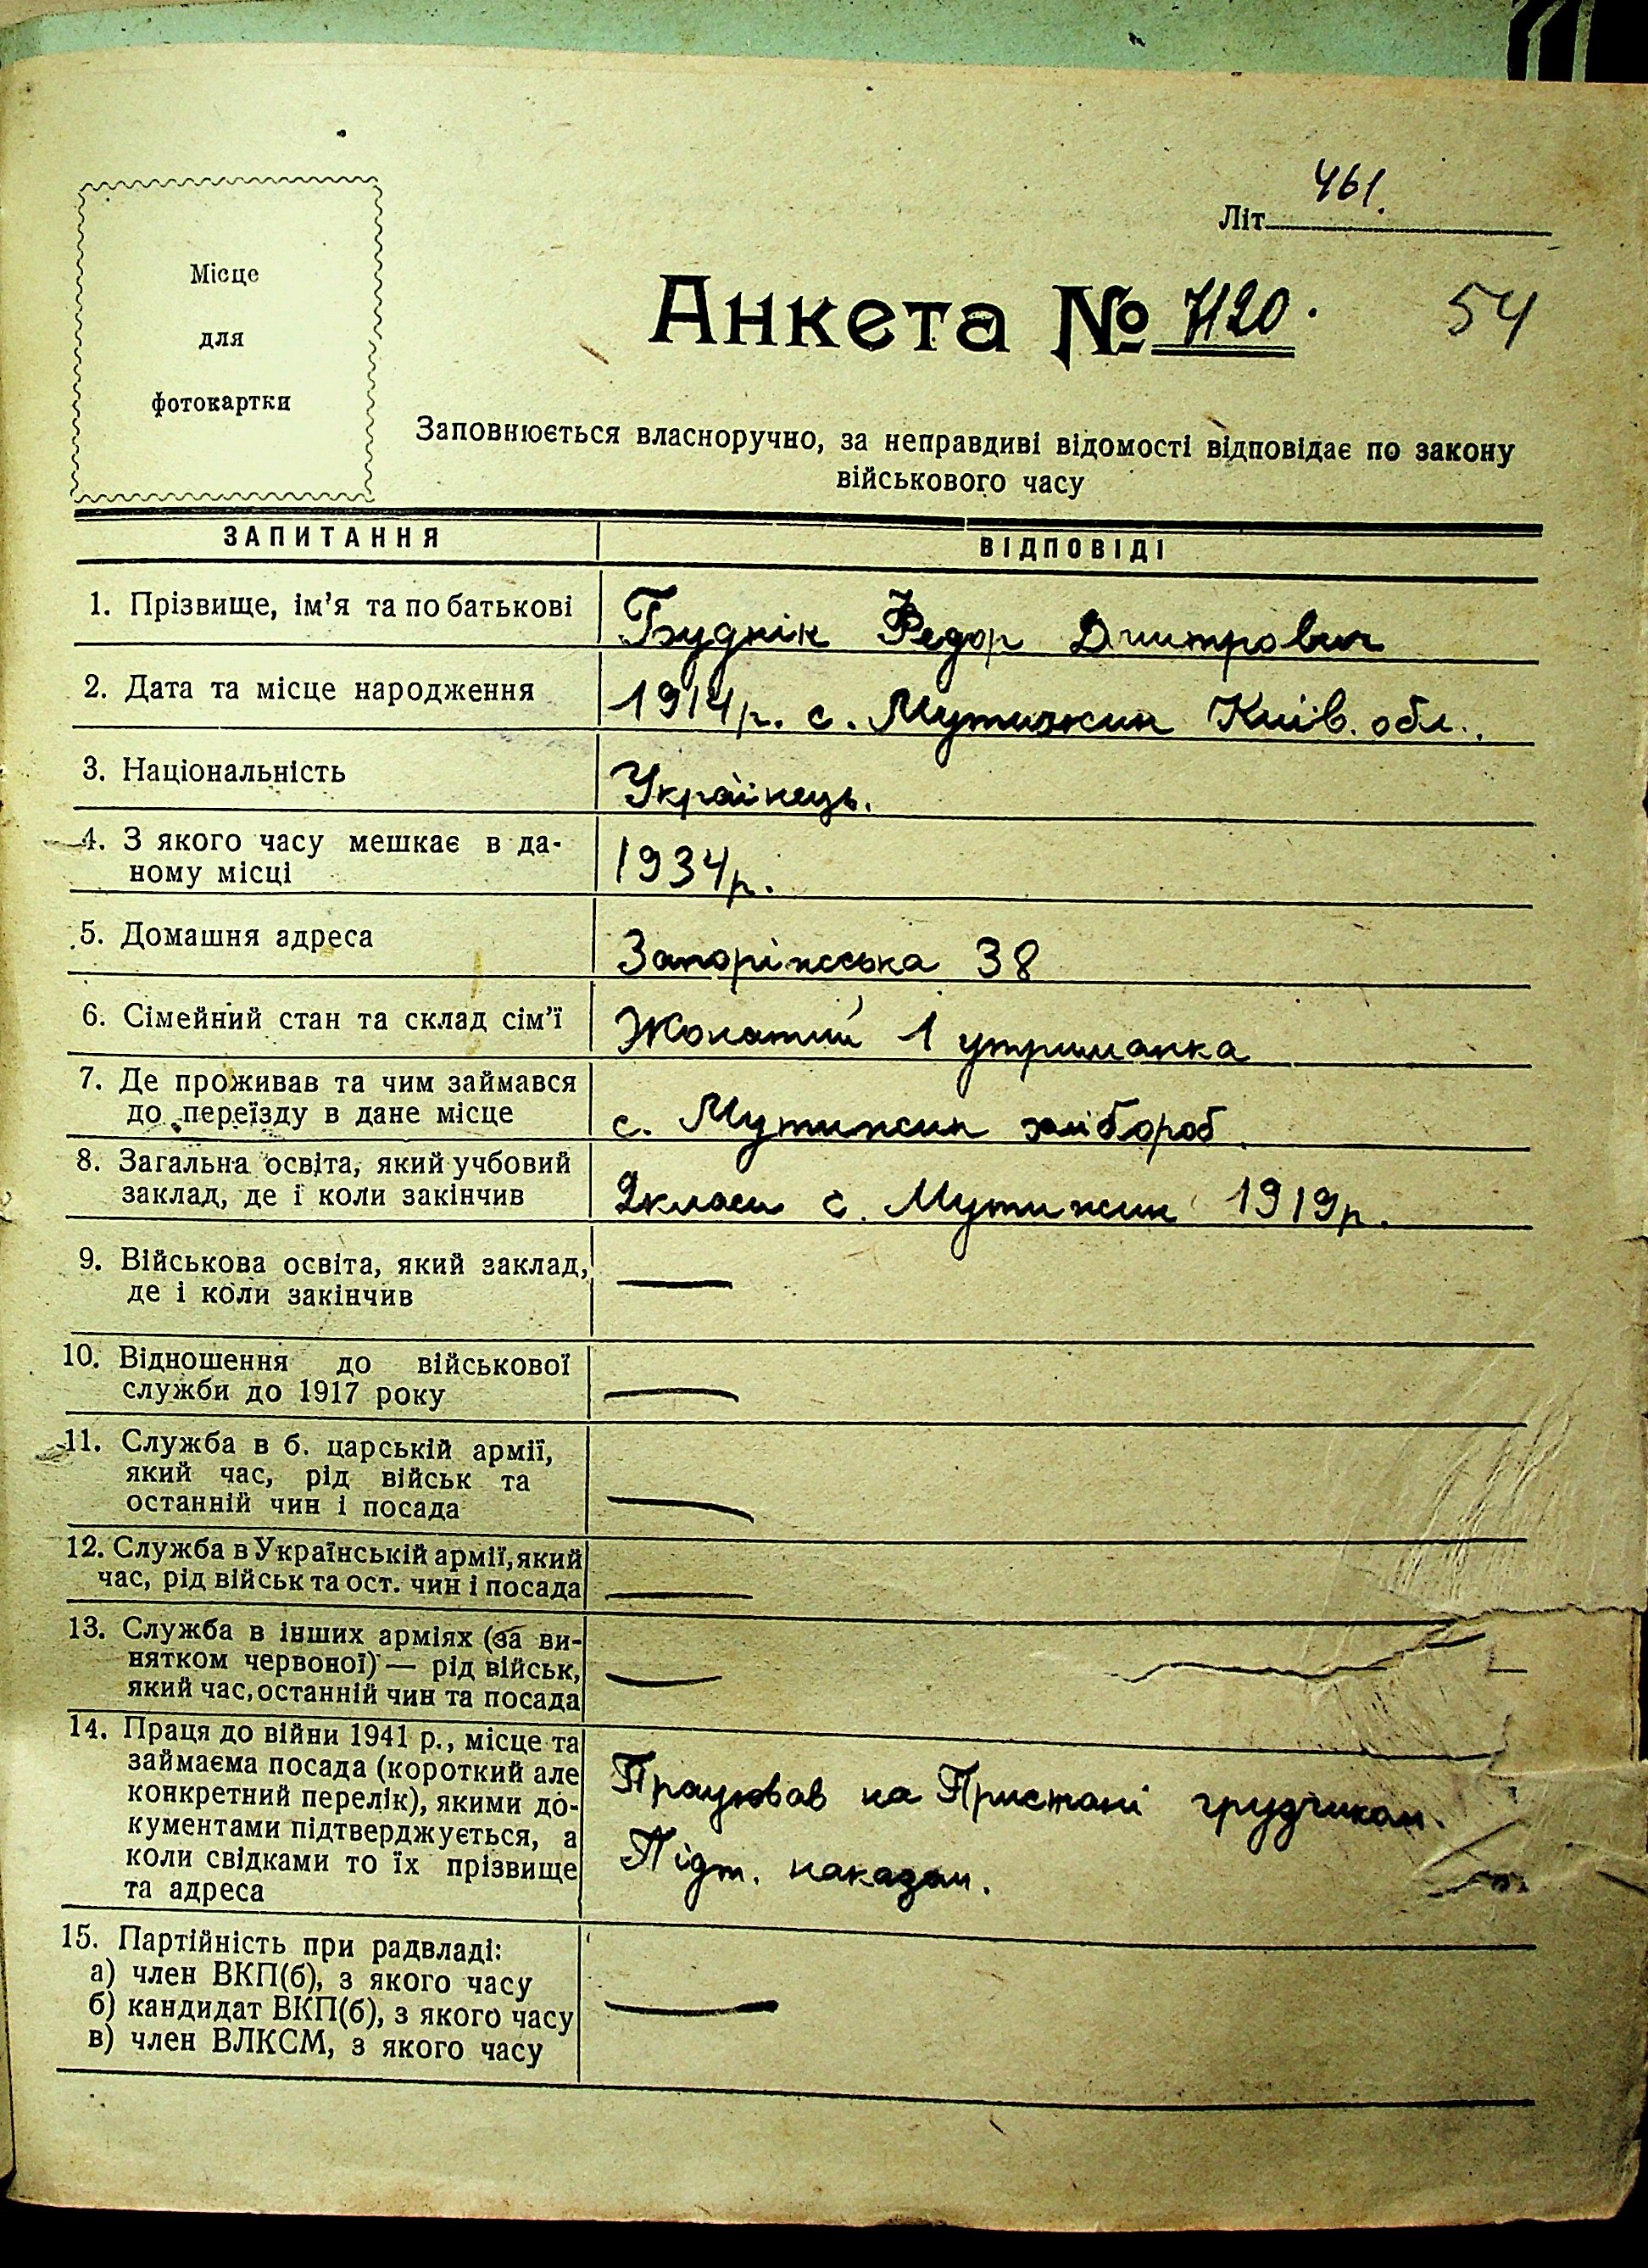 461.
Літ
Місце
для
фотокартки
Анкета № 7120.
54
Заповнюється власноручно, за неправдиві відомості відповідає по закону
військового часу
ЗАПИТАННЯ
ВІДПОВІДІ
1. Прізвище, ім'я та по батькові
Буднік Федор Дмитрович
2. Дата та місце народження
1914р. с. Мутижин Київ. обл.
3. Національність
Українець.
4. З якого часу мешкає в да-
ному місці
1934р.
5. Домашня адреса
Запоріжська 38
6. Сімейний стан та склад сім'ї
Жонатий 1 утриманка
7. Де проживав та чим займався
до переїзду в дане місце
с. Мутижин хлібороб.
8. Загальна освіта, який учбовий
заклад, де і коли закінчив
2 класи с. Мутижин 1919р.
9. Військова освіта, який заклад,
де і коли закінчив
—
10. Відношення до військової
служби до 1917 року
—
11. Служба в б. царській армії,
який час, рід військ та
останній чин і посада
—
12. Служба в Українській армії, який
час, рід військ та ост. чин і посада
—
13. Служба в інших арміях (за ви-
нятком червоної) — рід військ,
який час, останній чин та посада
—
14. Праця до війни 1941 р., місце та
займаєма посада (короткий але
конкретний перелік), якими до-
кументами підтверджується, а
коли свідками то їх прізвище
та адреса
Працював на Пристані грузчиком.
Підт. наказом.
15. Партійність при радвладі:
а) член ВКП(б), з якого часу
б) кандидат ВКП(б), з якого часу
в) член ВЛКСМ, з якого часу
—